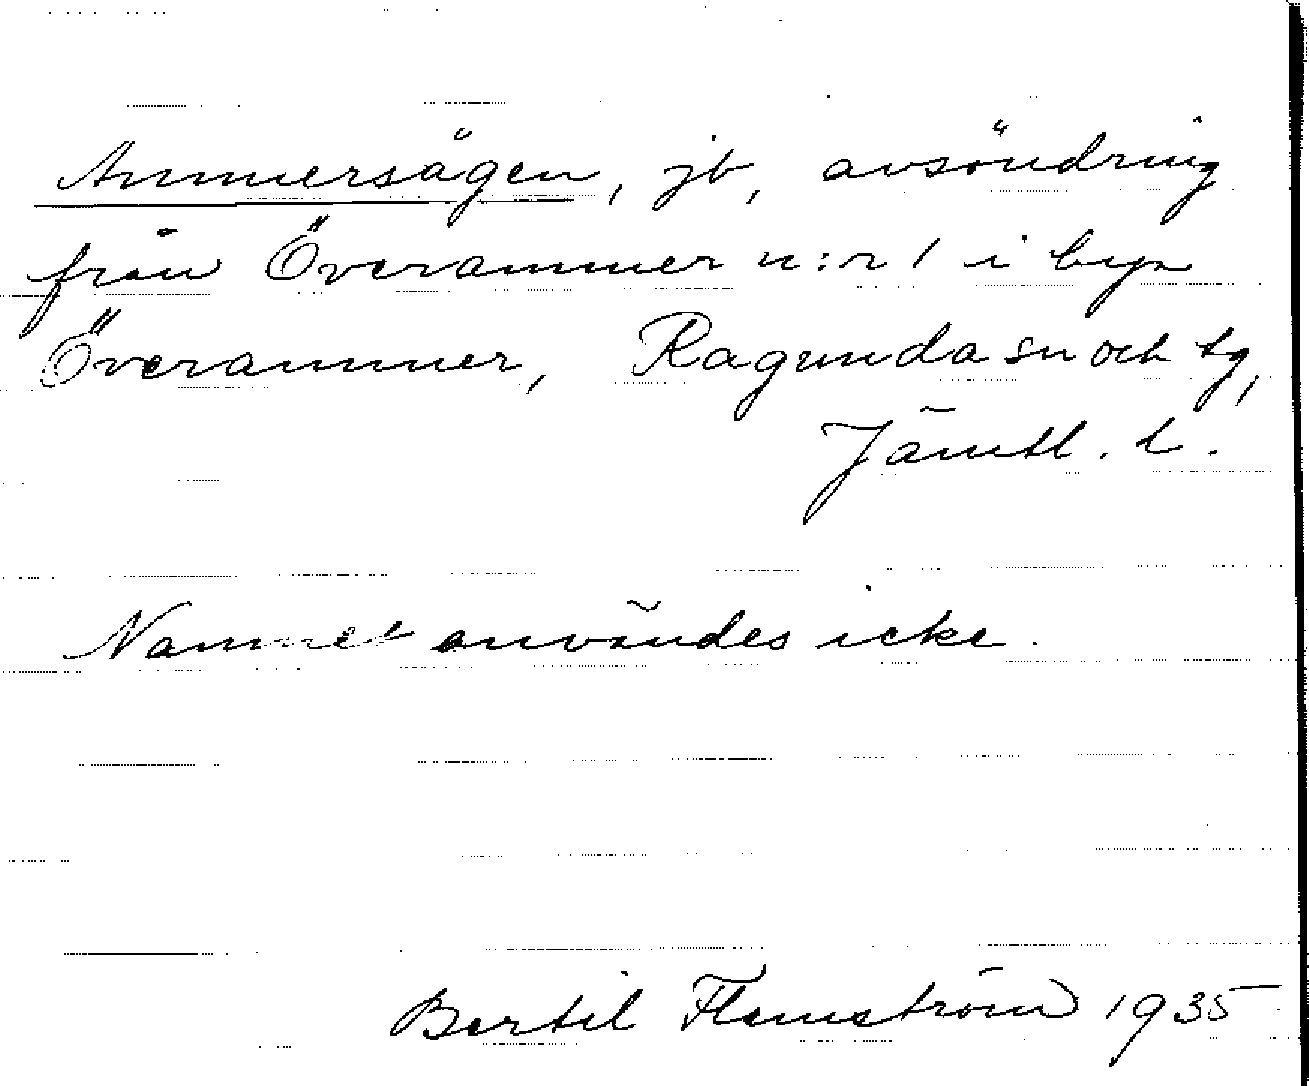 Ammersågen, jb, avsöndring
från Överammer n:r 1 i byn
Överammer, Ragunda sn och tg,
Jämtl. l.
Namnet användes icke.
Bertil Flemström 1935